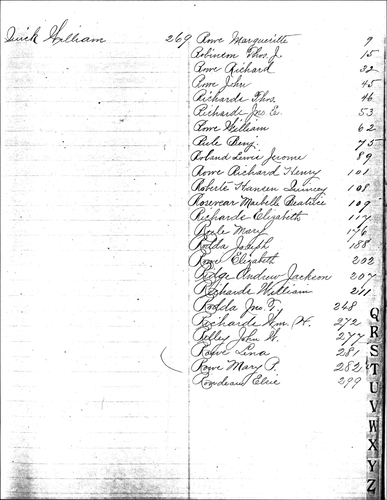 Quick William 269
Rowe Margueritte 9
Robinson Thos. J. 15
Rowe Richard 32
Rowe John 45
Richards Thos. 46
Richards Jno. E. 53
Rowe William 62
Rule Benj. 75
Roland Lewis Jerome 89
Rowe Richard Henry 101
Roberts Hansen Quincy 108
Rosevear Maebelle Beatrice 109
Richards Elizabeth 117
Mary 176
Rodda Joseph 188
Rowe Elizabeth 202
Ridge Andrew Jackson 207
Richards William 211
Rodda Jno. T. 248
Richards Wm. H. 272
John W. 277
Rowe Lena 281
Rowe Mary P. 282
Rondeau Elsie 299
Q
R
S
T
U
V
W
X
Y
Z